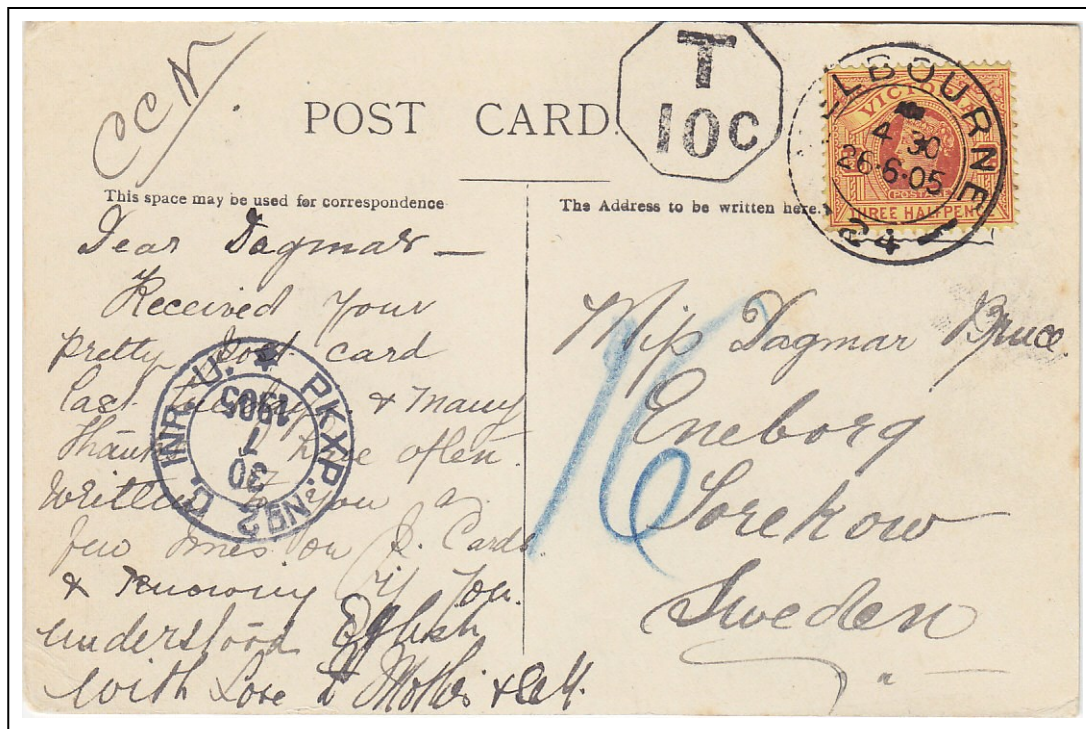 CCN
POST CARD.
T
10C
MELBOURNE
4 30
26·6·05
24
VICTORIA
POSTAGE
THREE HALFPENCE
This space may be used for correspondence
The Address to be written here.
Dear Dagmar —
Received Your
pretty Post card
Last & Many
Thanks have often
Written to you a
few on P. Cards
& Knowing if You
understood English
with Love to Mother & all.
PKXP. No 2 C. INR. U.
30
7
1905
16
Miss Dagmar Bruce
Eneborg
Sweden